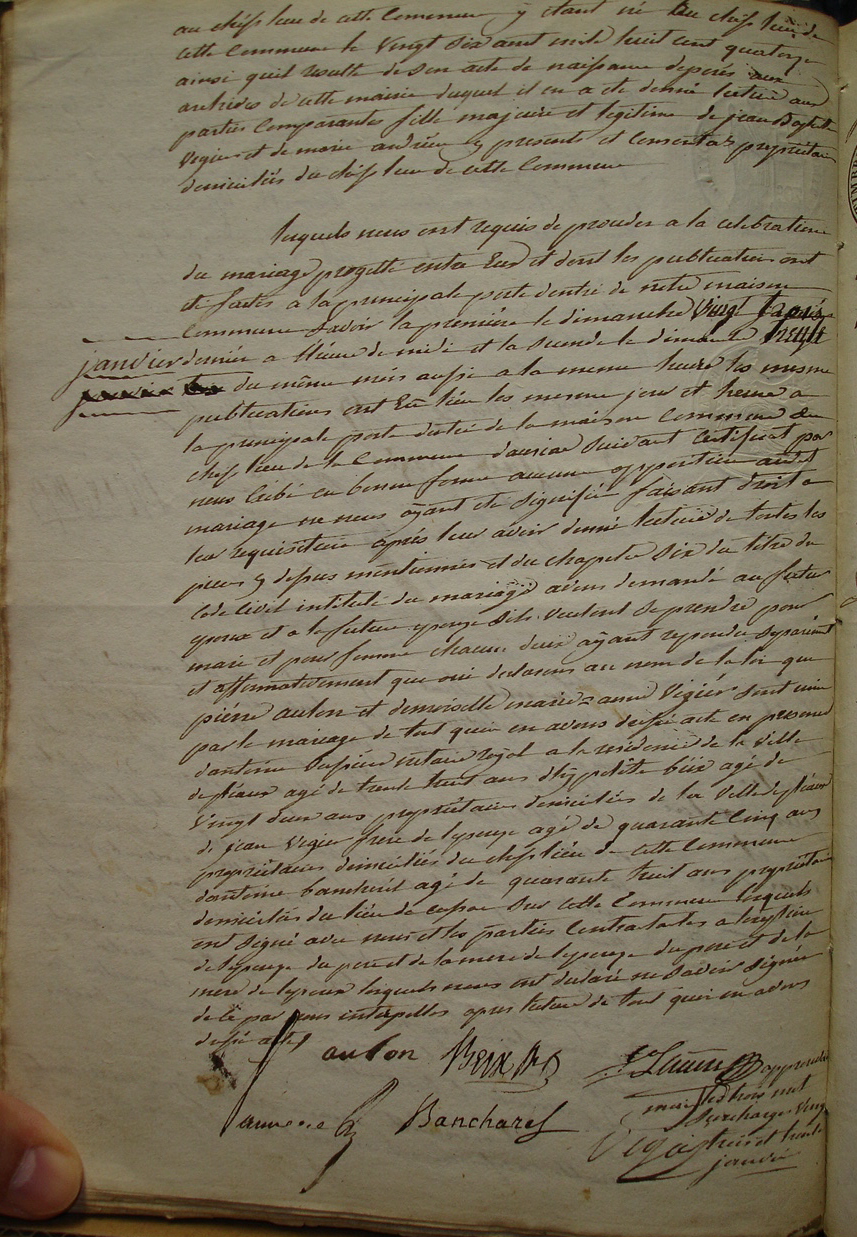 au chef lieu de cette Commune y étant né au chef lieu de
cette Commune le Vingt Six aout mil huit cent quatorze
ainsi quil resulte de son acte de naissance deposés aux
archives de cette mairie duquel il en a eté donné lecture aux
parties Comparantes fille majeure et legitime de jean Baptiste
Vigier et de marie andrieu y presents et Consentas propriétaires
domiciliés du chef lieu de cette Commune
lesquels nous ont requis de proceder a la celebration
du mariage projetté entre Eux et dont les publications ont
eté faites a la principale porte dentré de notre maison
Commune Savoir la première le dimanche Vingt trois
janvier dernier a lheure de midi et la Seconde le dimanche trente
janvier du même mois aussi a la meme heure les meme
publications ont Eu lieu les mesme jour et heure a
la principale porte dentré de la maison Commune du
chef lieu de la Commune Suivant Certificat par
nous Exibé en bonne forme aucune opposition audit
mariage ne nous ayant eté signifiée faisant droit a
leur requisition après leur avoir donné lecture de toutes les
pieces y dessus mentionnés et du chapitre Six du titre du
Code Civil intitulé du mariage avons demandé au futur
epoux et a la future epouse Sils veulent Se prendre pour
mari et pour femme chacun deux ayant repondu Separément
et affirmativement que oui declarons au nom de la loi que
pierre aulon et demoiselle marie anne Vigier Sont unis
par le mariage de tout quoi en avons dressé acte en presence
dantoine notaire royal a la residence de la Ville
de pléaux agé de trente huit ans dhypolite Béix agé de
Vingt deux ans propriétaires domiciliés de la Ville de pléaux
de jean Vigier frere de lepouse agé de quarante Cinq ans
propriétaires domiciliés du chef lieu de cette Commune
dantoine bancharel agé de quarante huit ans propriétaire
domiciliés du lieu de Sur cette Commune lesquels
ont Signé avec nous et les parties Contractantes a lexeption
de lepouse du pere et de la mere de lepouse du pere et de la
mere de lepoux lesquels nous ont declaré ne Savoir Signée
de ce par nous interpellés apres lecture de tout quoi en avons
dressé acte
aulon Beix
approuvé
les trois mot
Surchargés Vingt
Bancharel
Vigier trois et trente
janvier